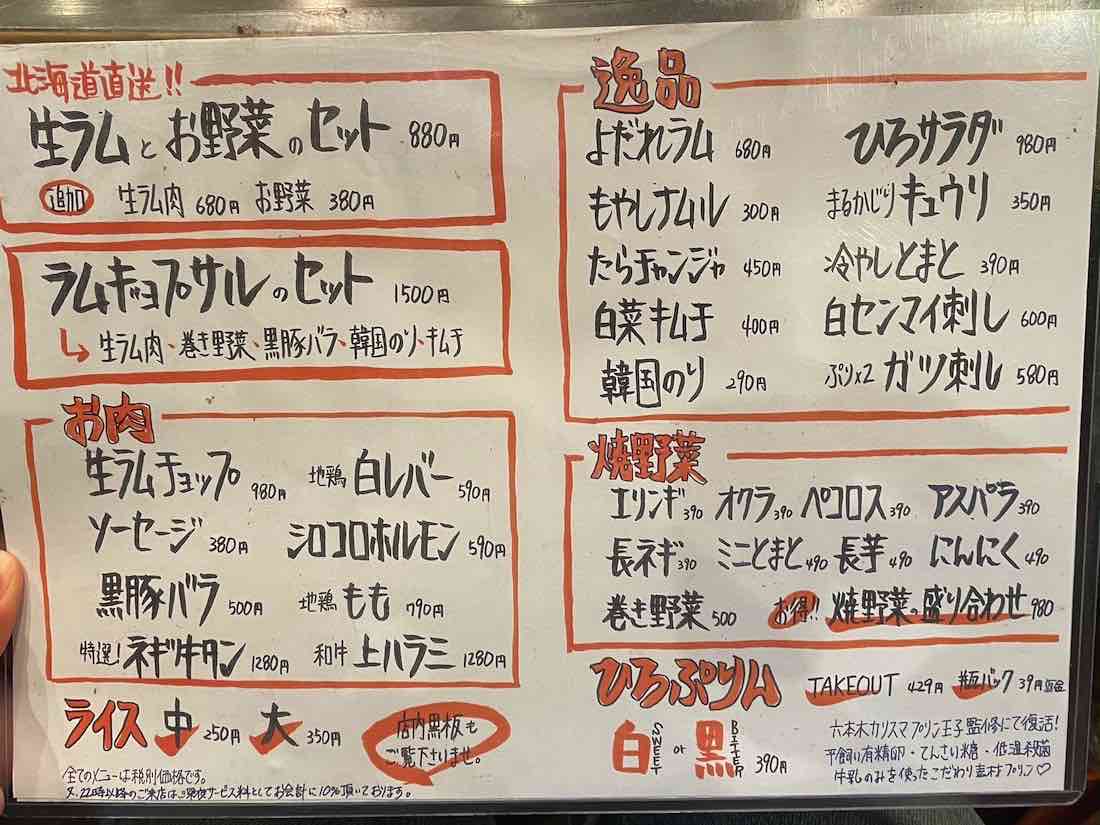 北海道直送!!
生ラムとお野菜のセット 880円
追加 生ラム肉 680円 お野菜 380円
ラムギョプサルのセット 1500円
生ラム肉、巻き野菜、黒豚バラ、韓国のり、キムチ
お肉
生ラムチョップ 980円 地鶏 白レバー 590円
ソーセージ 380円 シロコロホルモン 590円
黒豚バラ 500円 地鶏 もも 790円
特選! ネギ牛タン 1280円 和牛 上ハラミ 1280円
ライス 中 250円 大 350円
店内黒板も
ご覧下さいませ。
全てのメニューは税別価格です。
又、22時以降のご来店は、深夜サービス料としてお会計に10%頂いております。
逸品
よだれラム 680円 ひろサラダ 980円
もやしナムル 300円 まるかじりキュウリ 350円
たらチャンジャ 450円 冷やしとまと 390円
白菜キムチ 400円 白センマイ刺し 600円
韓国のり 290円 ぷりx2 ガツ刺し 580円
焼野菜
エリンギ390 オクラ390 ペコロス390 アスパラ390
長ネギ390 ミニとまと490 長芋490 にんにく490
巻き野菜500 お得!! 焼野菜・盛り合わせ980
ひろぷりん TAKEOUT 429円 瓶パック 39円返金
白 SWEET or 黒 BITTER 390円
六本木カリスマプリン王子監修にて復活!
平飼い有精卵・てんさい糖・低温殺菌
牛乳のみを使ったこだわり素材プリン♡